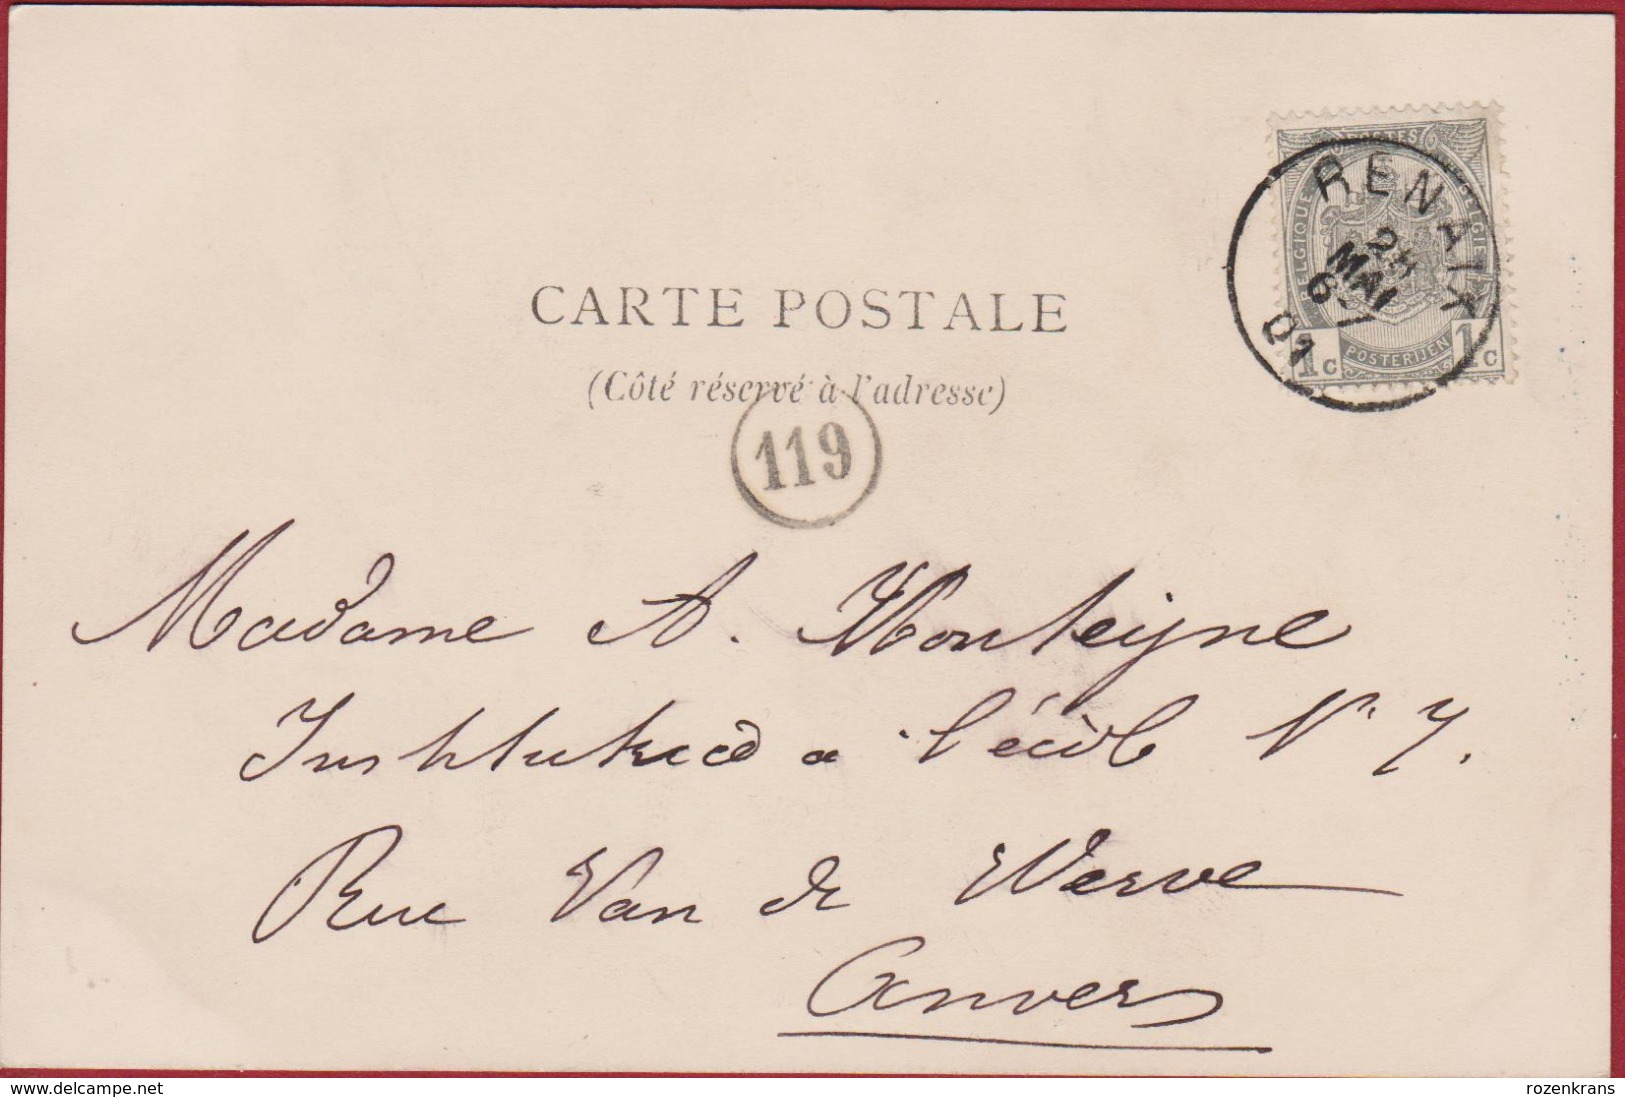 POSTES
BELGIQUE BELGIE
1 c POSTERIJEN 1 c
RENAIX
MAI
6-7
01
CARTE POSTALE
(Côté réservé à l'adresse)
119
Madame A. Monteyne
Institutrice a l'école N° 7.
Rue Van de Werve
Anvers
www.delcampe.net
rozenkrans